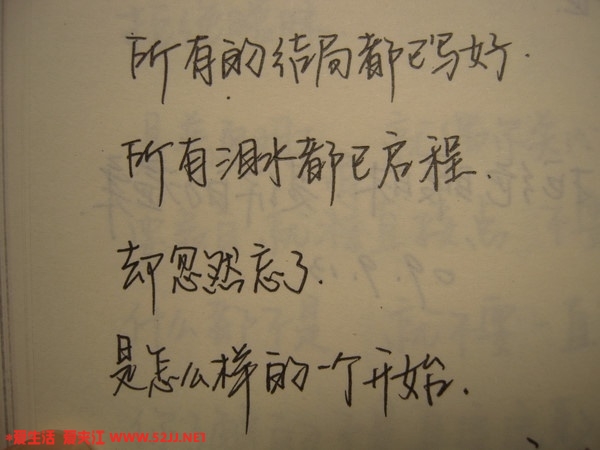 所有的结局都已写好.
所有泪水都已启程.
却忽然忘了.
是怎么样的一个开始.
+爱生活 爱夹江 WWW.52JJ.NET